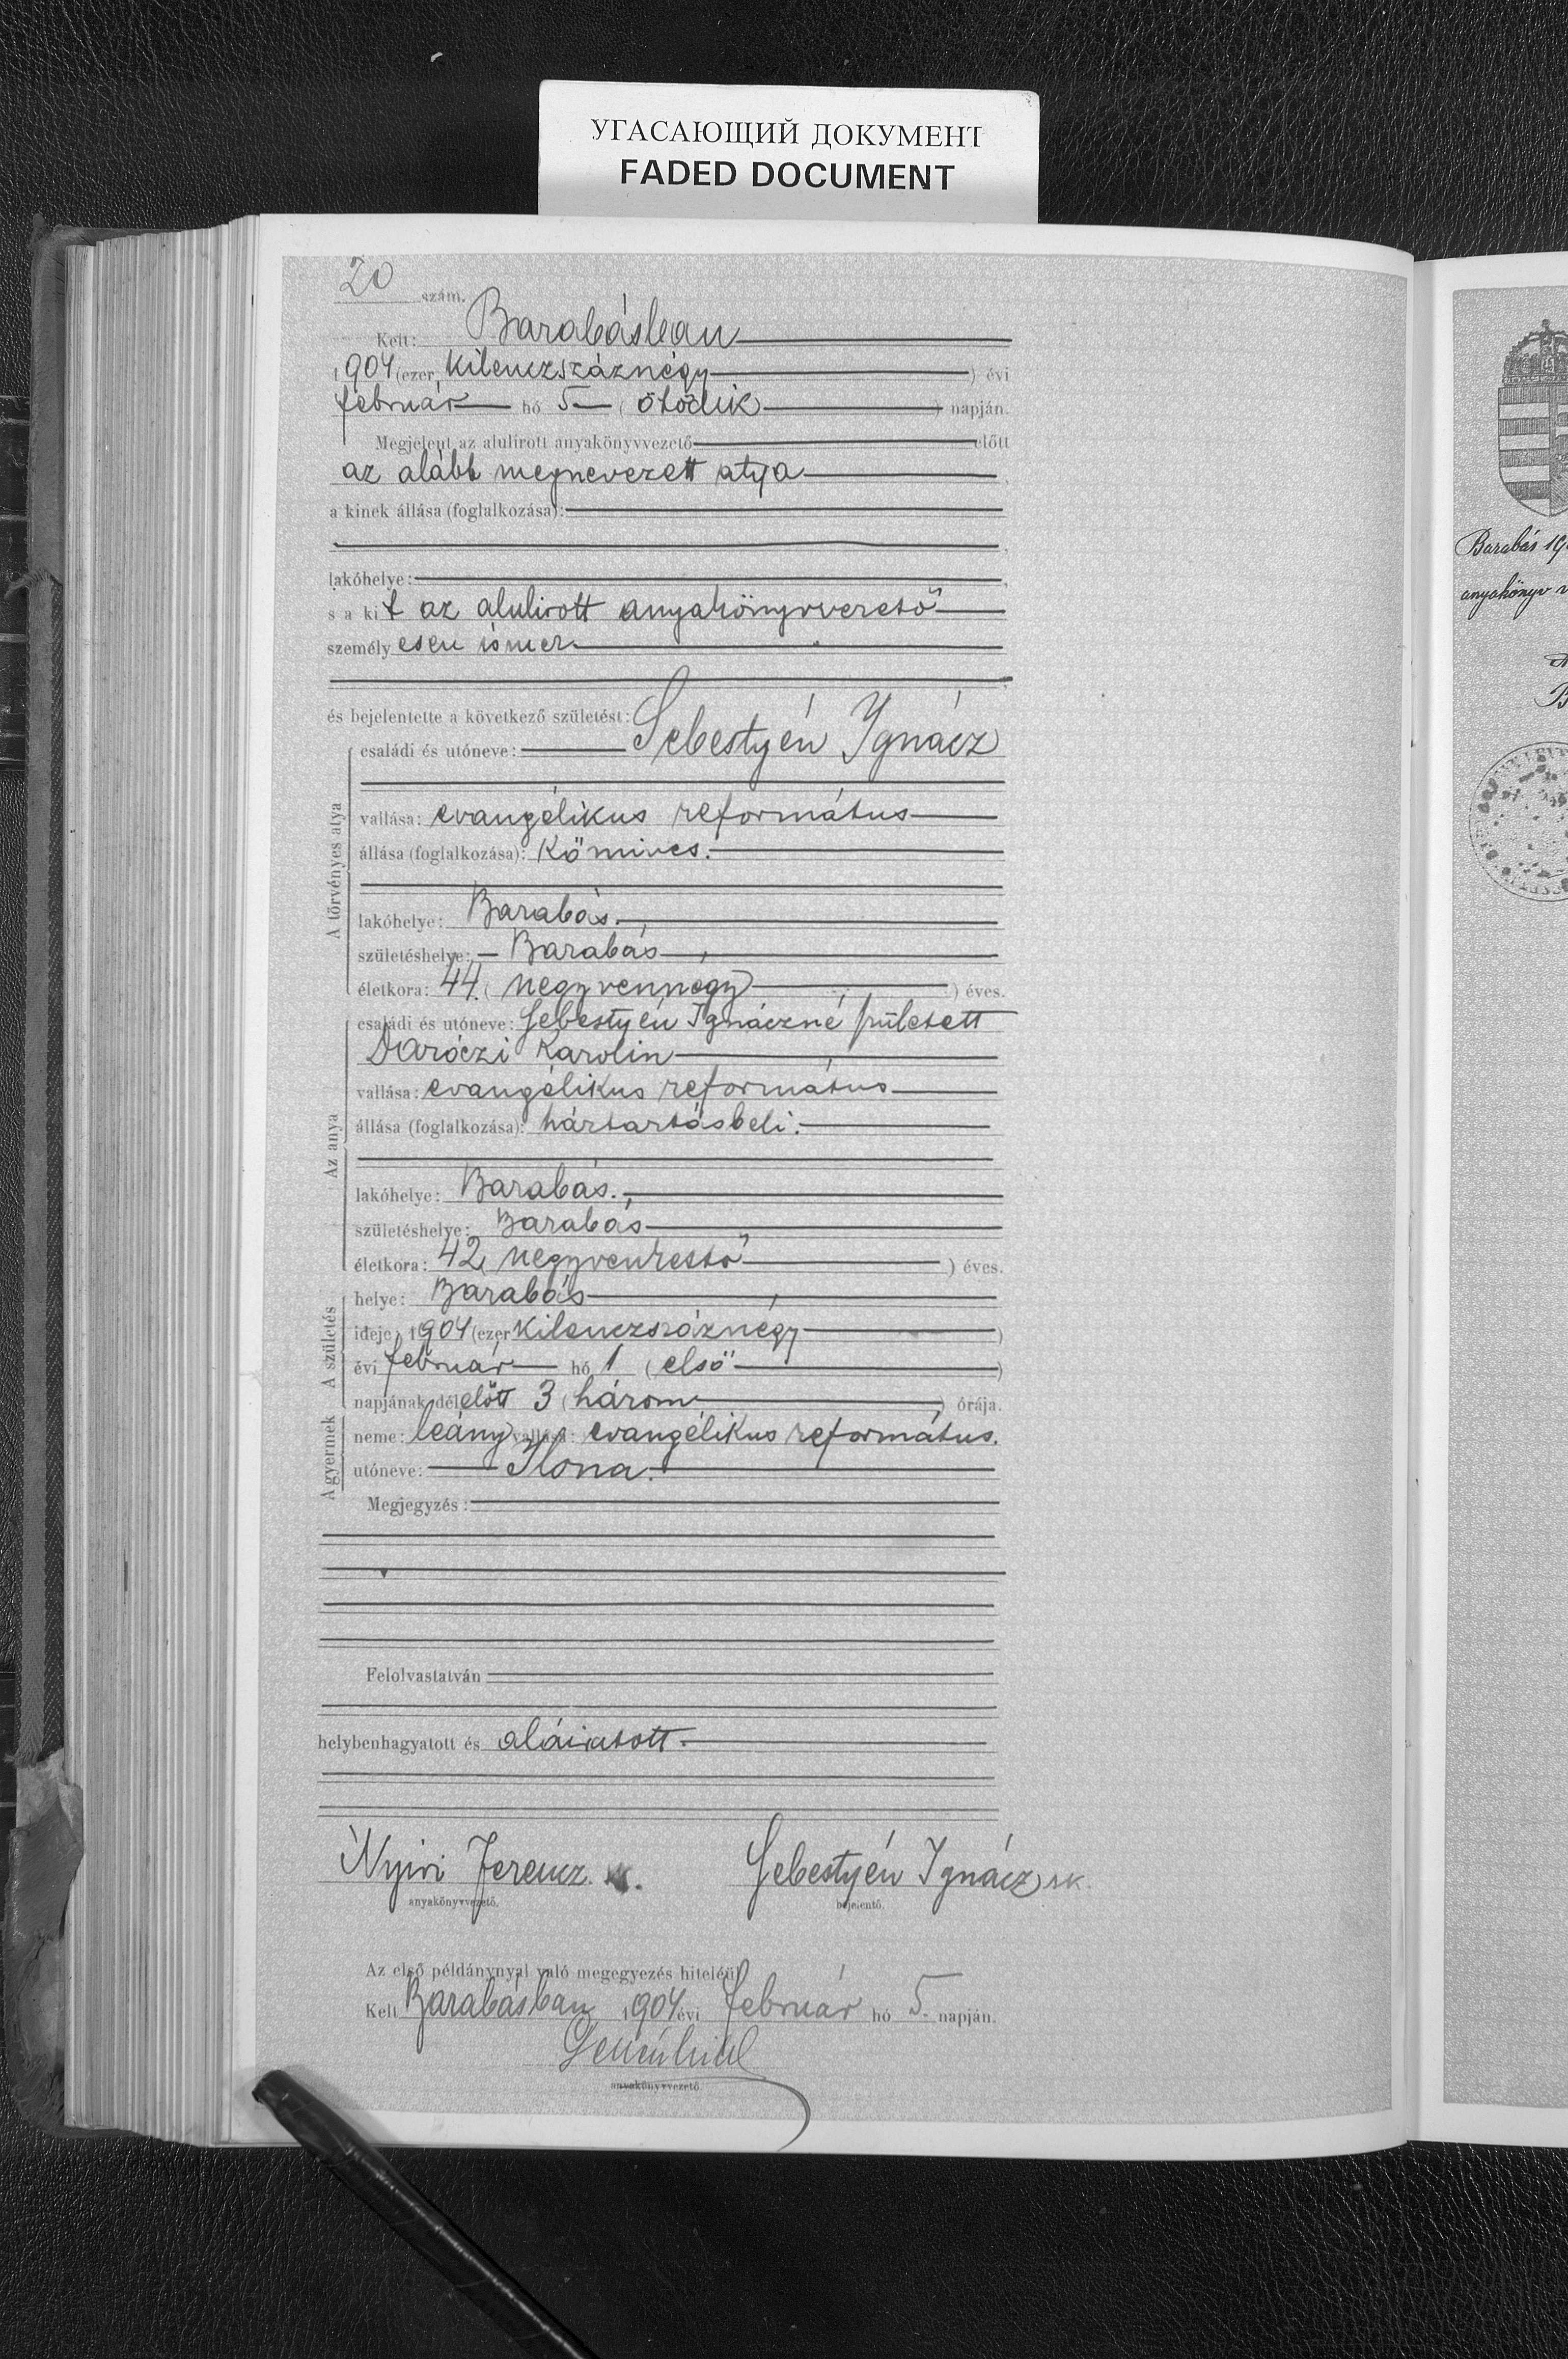 УГАСАЮЩИЙ ДОКУМЕНТ
FADED DOCUMENT
20 szám.
Kelt: Barabásban
1904 (ezer kilenczszáznégy) évi
február hó 5 (ötödik) napján.
Megjelent az alulirott anyakönyvvezető előtt
az alább megnevezett atya
a kinek állása (foglalkozása):
lakóhelye:
s a kit az alulirott anyakönyvvezető
személyesen ismer
és bejelentette a következő születést:
A törvényes atya
családi és utóneve: Sebestyén Ignácz
vallása: evangélikus református
állása (foglalkozása): Kőmives.
lakóhelye: Barabás.
születéshelye: Barabás
életkora: 44. (negyvennégy) éves.
Az anya
családi és utóneve: Sebestyén Ignáczné született
Daróczi Karolin
vallása: evangélikus református
állása (foglalkozása): háztartásbeli.
lakóhelye: Barabás.
születéshelye: Barabás
életkora: 42 (negyvenkettő) éves.
A születés
helye: Barabás
ideje: 1904 (ezer kilenczszáznégy)
évi február hó 1 (első)
napjának délelőtt 3 (három) órája.
A gyermek
neme: leány vallása: evangélikus református.
utóneve: Ilona.
Megjegyzés:
Felolvastatván
helybenhagyatott és aláiratott.
Nyiri Ferencz sk. Sebestyén Ignácz sk.
anyakönyvvezető. bejelentő.
Az első példánynyal való megegyezés hiteléül
Kelt Barabásban 1904 évi február hó 5. napján.
anyakönyvvezető
Barabás 19
anyakönyv